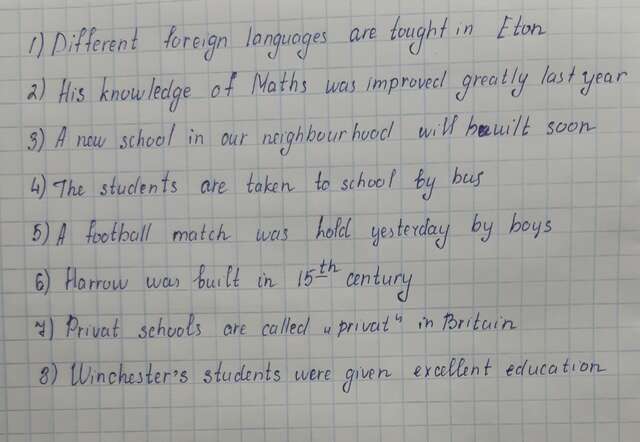 1) Different foreign languages are tought in Eton
2) His knowledge of Maths was improved greatly last year
3) A new school in our neighbourhood will built soon
4) The students are taken to school by bus
5) A football match was hold yesterday by boys
6) Harrow was built in 15th century
7) Privat schools are called „privat“ in Britain
8) Winchester's students were given excellent education